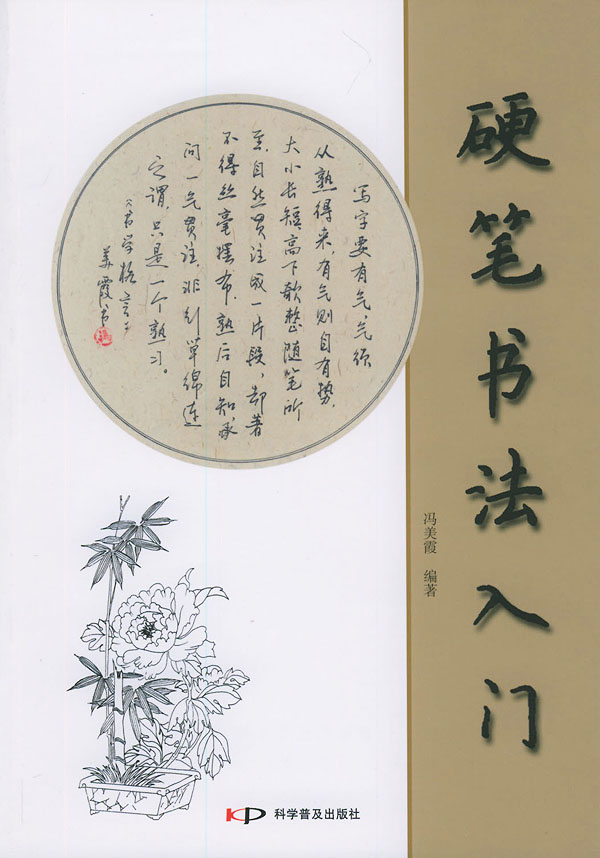 硬笔书法入门
冯美霞 编著
写字要有气,气须
从熟得来,有气则自有势,
大小长短,高下欹整,随笔所
至,自然贯注,成一片段,却著
不得丝毫摆布,熟后自知。承
问一气贯注,非引笔绵连
之谓,只是一个熟习。
美霞书
科学普及出版社